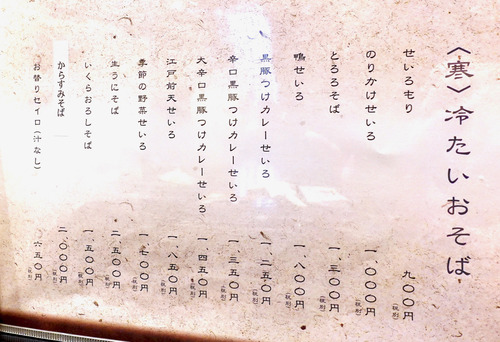 〈寒〉冷たいおそば
せいろもり 九〇〇円(税別)
のりかけせいろ 一、〇〇〇円(税別)
とろろそば 一、三〇〇円(税別)
鴨せいろ 一、八〇〇円(税別)
黒豚つけカレーせいろ 一、二五〇円(税別)
辛口黒豚つけカレーせいろ 一、三五〇円(税別)
大辛口黒豚つけカレーせいろ 一、四五〇円(税別)
江戸前天せいろ 一、八五〇円(税別)
季節の野菜せいろ 一、七〇〇円(税別)
生うにそば 二、五〇〇円(税別)
いくらおろしそば 一、五〇〇円(税別)
からすみそば 二、〇〇〇円(税別)
お替りセイロ(汁なし) 六五〇円(税別)